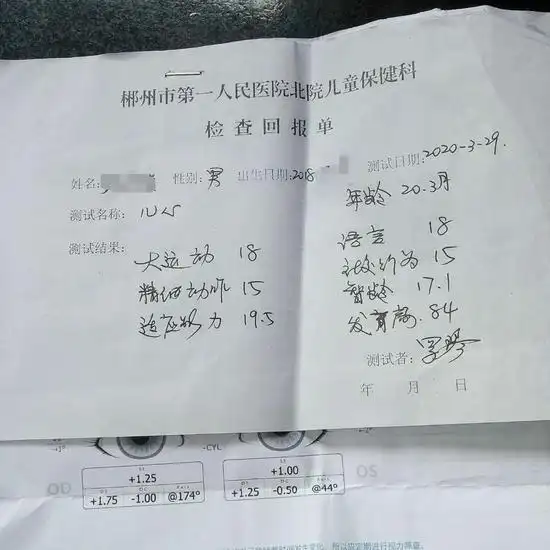 郴州市第一人民医院北院儿童保健科
检查回报单
姓名: 性别: 男 出生日期: 2018 测试日期: 2020-3-29.
年龄 20.3月
测试名称: 儿心
测试结果:
大运动 18 语言 18
精细动作 15 社交行为 15
适应能力 19.5 智龄 17.1
发育商. 84
测试者:
年 月 日
-CYL
OD OS
+1.25 +1.00
+1.75 -1.00 @174° +1.25 -0.50 @44°